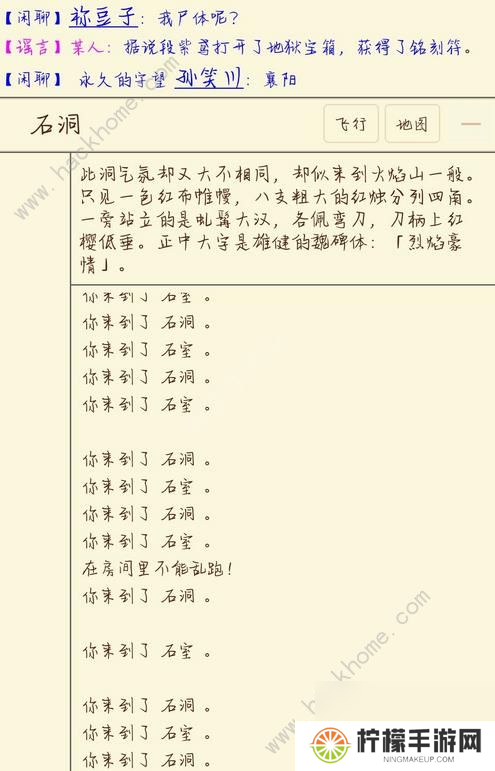 【闲聊】祢豆子：我尸体呢？
【谣言】某人：据说段紫鸢打开了地狱宝箱，获得了铭刻符。
【闲聊】永久的守望 孙笑川：襄阳
石洞
飞行
地图
此洞气氛却又大不相同，却似来到火焰山一般。
只见一色红布帷幔，八支粗大的红烛分列四角。
一旁站立的是虬髯大汉，各佩弯刀，刀柄上红
樱低垂。正中大字是雄健的魏碑体：「烈焰豪
情」。
你来到了 石室 。
你来到了 石洞 。
你来到了 石室 。
你来到了 石洞 。
你来到了 石室 。
你来到了 石洞 。
你来到了 石室 。
你来到了 石洞 。
你来到了 石室 。
在房间里不能乱跑！
你来到了 石洞 。
你来到了 石室 。
你来到了 石洞 。
你来到了 石室 。
你来到了 石洞 。
hackhome.com
hackhome.com
hackhome.com
柠檬手游网
NINGMAKEUP.COM